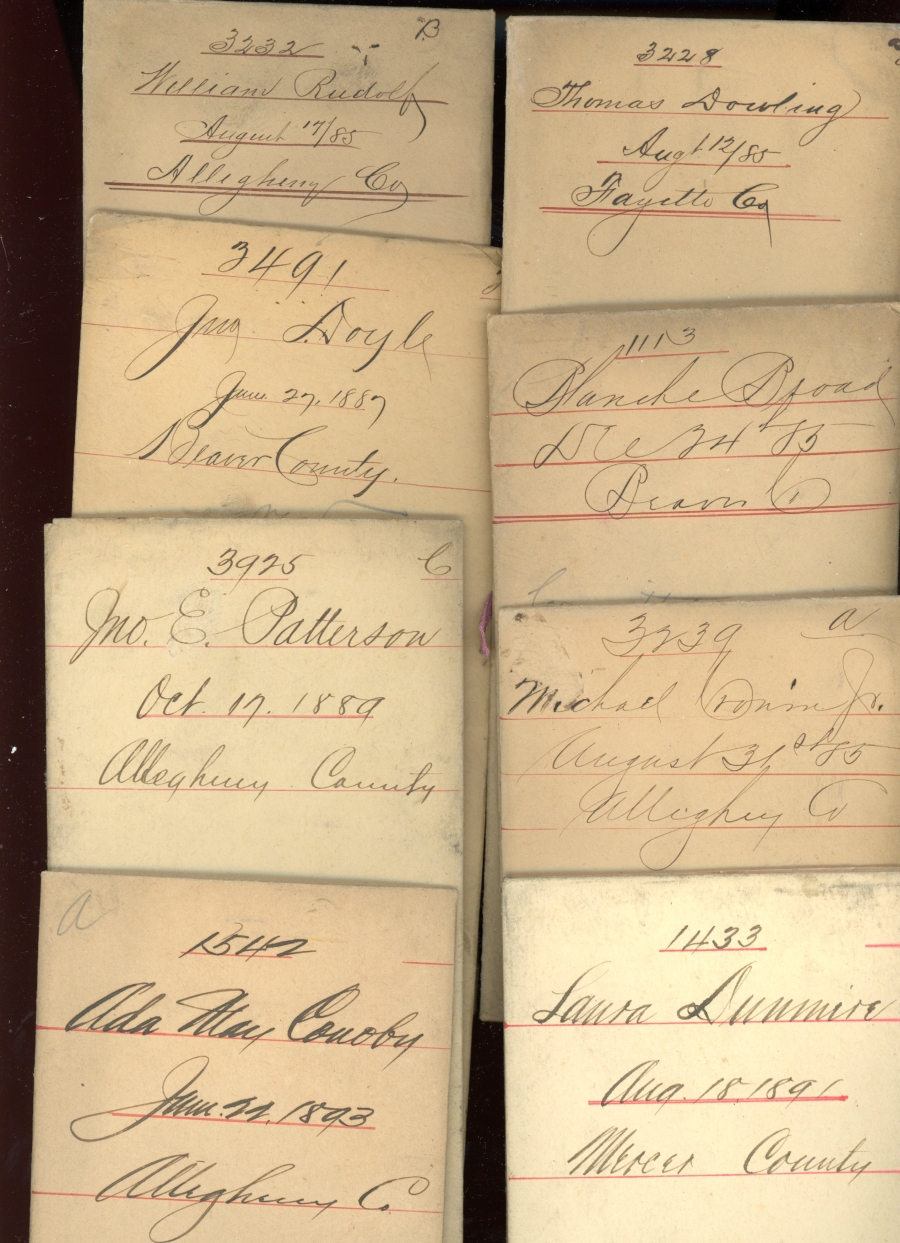 3232
B
William Rudolf
August 17/85
Allegheny Co
3228
Thomas Dowling
Augt 12/85
Fayette Co
3491
Jno. Doyle
June 27, 1887
Beaver County.
1113
Blanche Broad
Dec 24th 85
Beaver Co
3925
C
Jno. E. Patterson
Oct. 17. 1889
Allegheny County
3239
a
Michael Jr.
August 31st 85
Allegheny Co
A
1542
Ada May Conoby
June. 22. 1893
Allegheny Co.
1433
Laura Dunmire
Aug. 18. 1891.
Mercer County